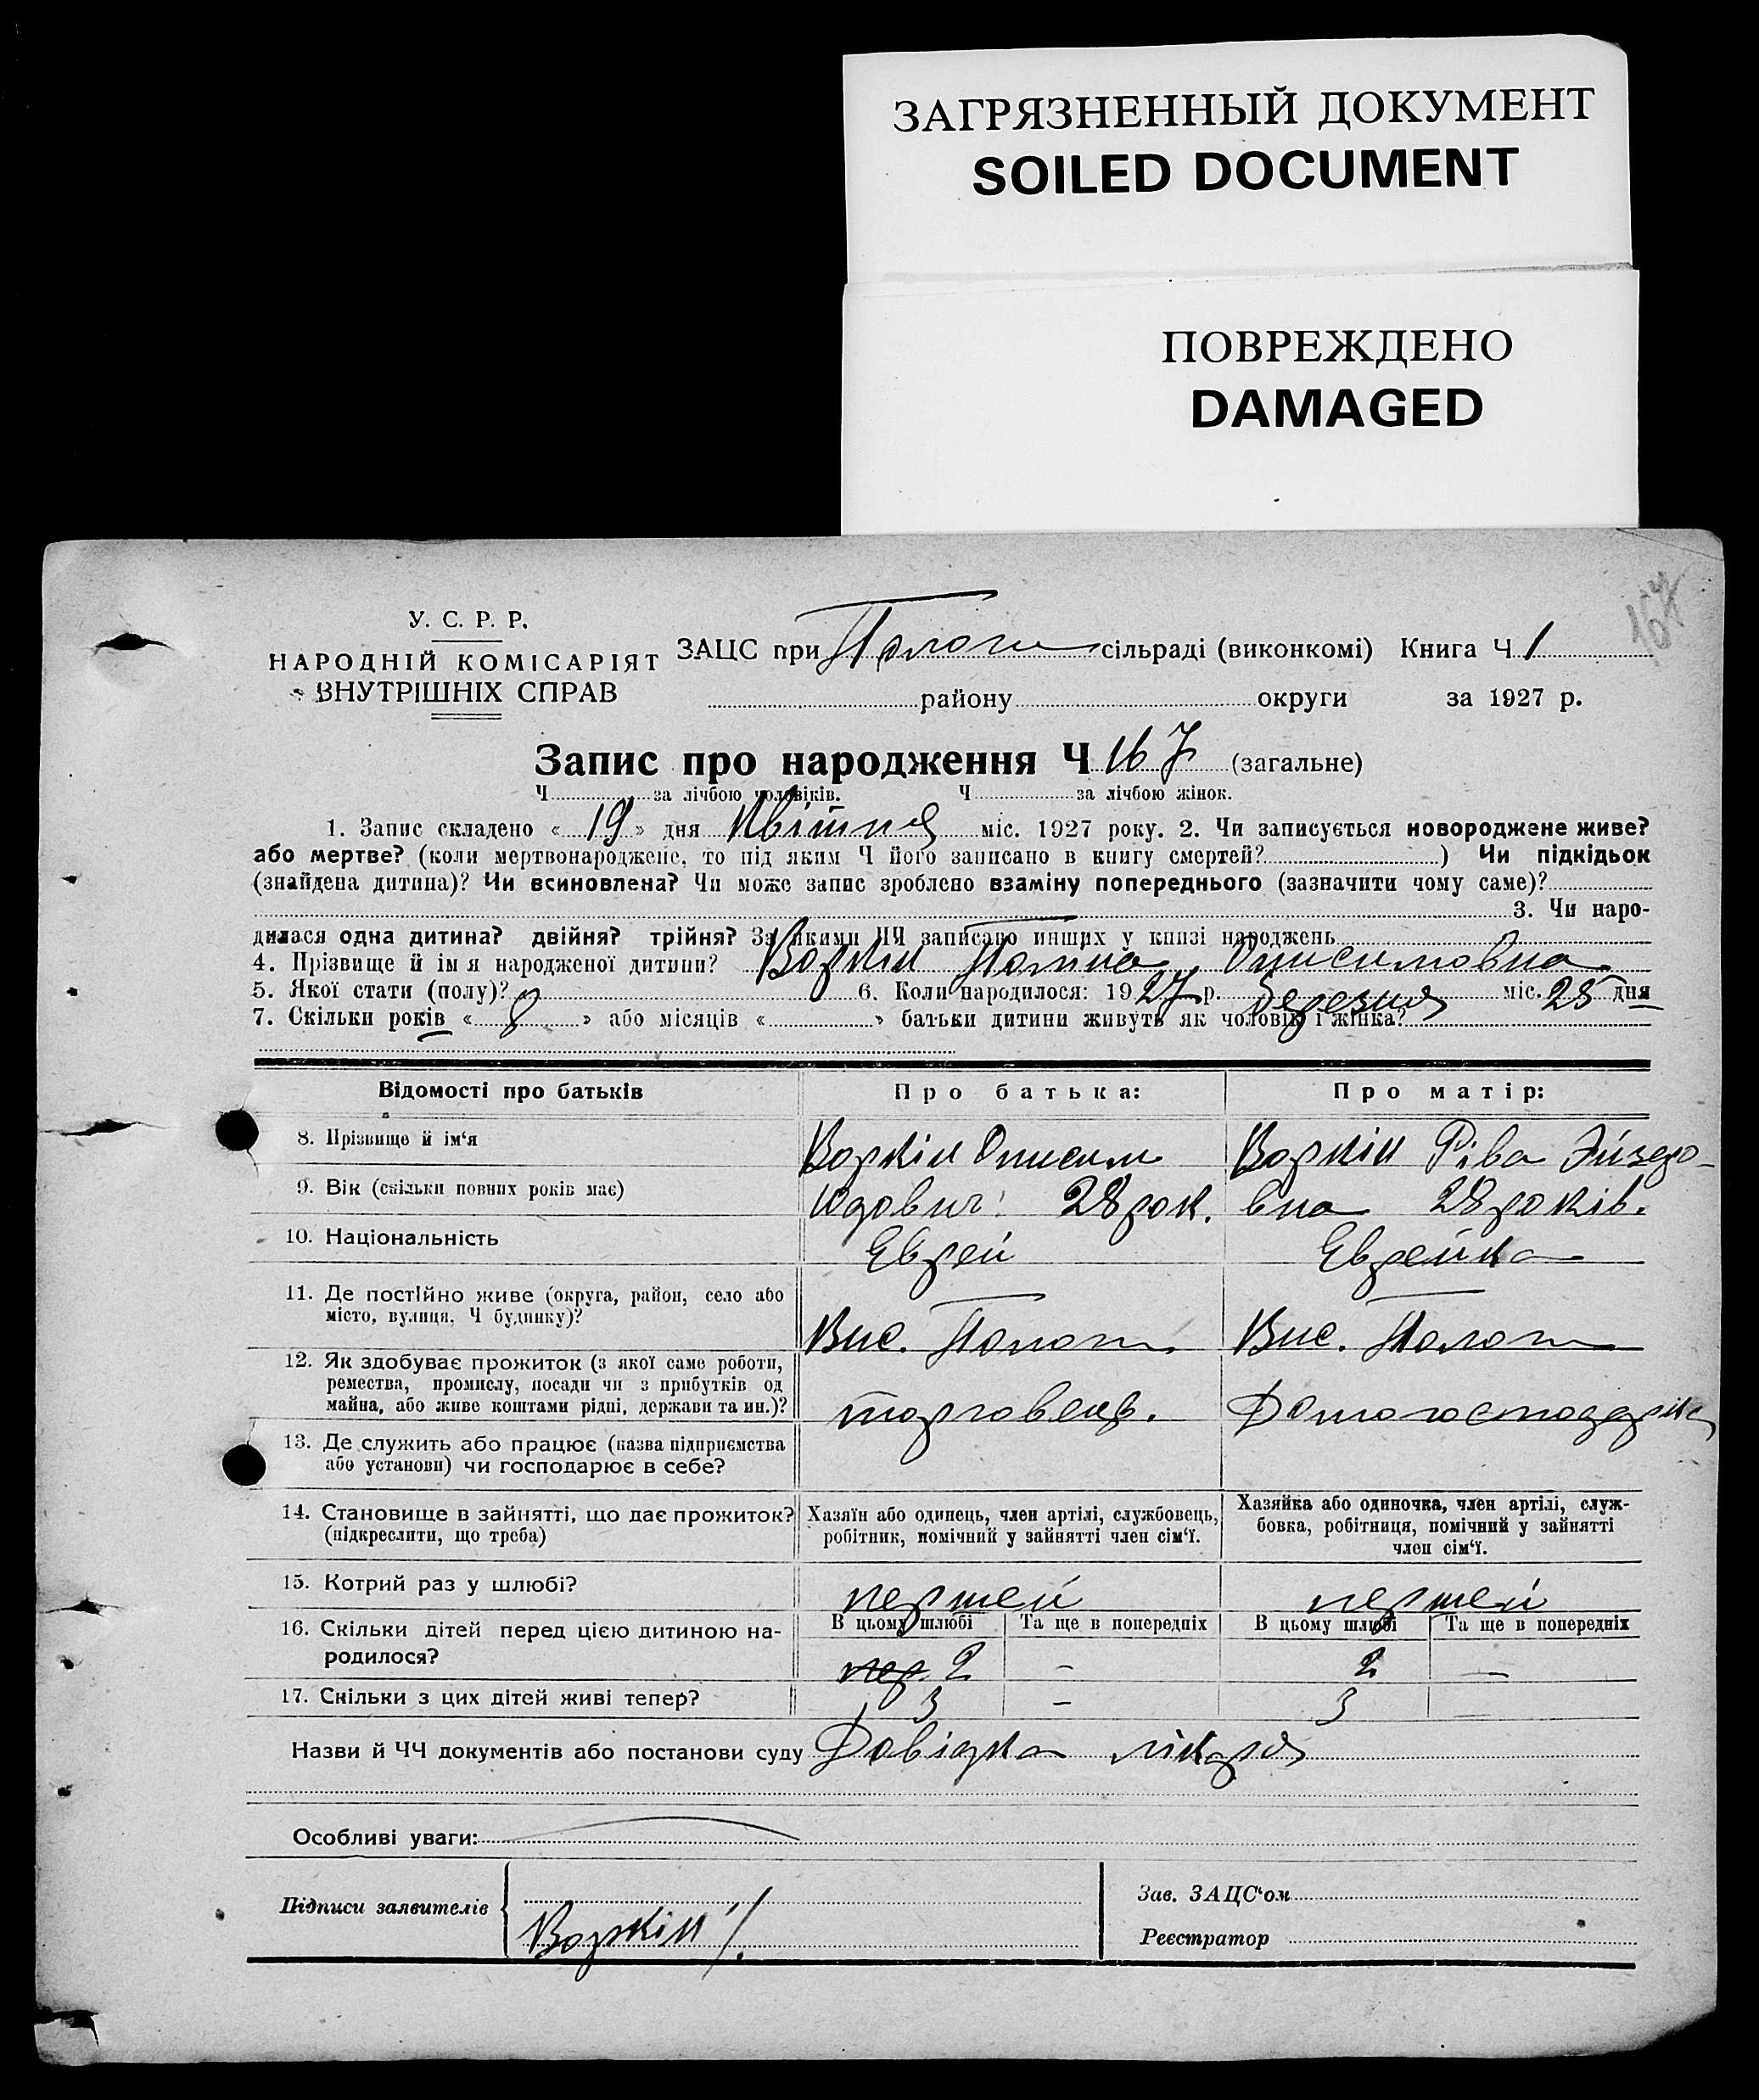 ЗАГРЯЗНЕННЫЙ ДОКУМЕНТ
SOILED DOCUMENT
ПОВРЕЖДЕНО
DAMAGED
167
У. С. Р. Р.
НАРОДНІЙ КОМІСАРІЯТ
ВНУТРІШНІХ СПРАВ
ЗАЦС при Пологи сільраді (виконкомі) Книга Ч 1
району округи за 1927 р.
Запис про народження Ч 167 (загальне)
Ч за лічбою чоловіків. Ч за лічбою жінок.
1. Запис складено « 19 » дня Квітня міс. 1927 року. 2. Чи записується новороджене живе?
або мертве? (коли мертвонароджене, то під яким Ч його записано в книгу смертей? ) Чи підкідьок
(знайдена дитина)? Чи всиновлена? Чи може запис зроблено взаміну попереднього (зазначити чому саме)?
3. Чи наро-
дилася одна дитина? двійня? трійня? За якими ЧЧ записано инших у книзі народжень
4. Прізвище й ім я народженої дитини? Воркін Поліна Онисимовна
5. Якої стати (полу)? 6. Коли народилося: 1927 р. Березня міс. 25 дня
7. Скільки років « 8 » або місяців « » батьки дитини живуть як чоловік і жінка?
Відомості про батьків Про батька: Про матір:
8. Прізвище й ім‘я Воркін Онисим Воркін Ріва
9. Вік (скільки повних років має) Юдович 28 рок. вна 28 років.
10. Національність Еврей Еврейка
11. Де постійно живе (округа, район, село або
місто, вулиця, Ч будинку)? Вис. Пологи Вис. Пологи
12. Як здобуває прожиток (з якої саме роботи,
ремества, промислу, посади чи з прибутків од
майна, або живе коштами рідні, держави та ин.)? торговець. Домогосподарка
13. Де служить або працює (назва підприємства
або установи) чи господарює в себе?
14. Становище в зайнятті, що дає прожиток?
(підкреслити, що треба)
Хазяїн або одинець, член артілі, службовець,
робітник, помічний у зайнятті член сім‘ї.
Хазяйка або одиночка, член артілі, служ-
бовка, робітниця, помічний у зайнятті
член сім‘ї.
15. Котрий раз у шлюбі? першей першей
16. Скільки дітей перед цією дитиною на-
родилося?
В цьому шлюбі Та ще в попередніх В цьому шлюбі Та ще в попередніх
пер. 2 – 2 —
17. Скільки з цих дітей живі тепер? 3 – 3 —
Назви й ЧЧ документів або постанови суду Довідка лікаря
Особливі уваги:
Підписи заявителів Воркін
Зав. ЗАЦС‘ом
Реєстратор